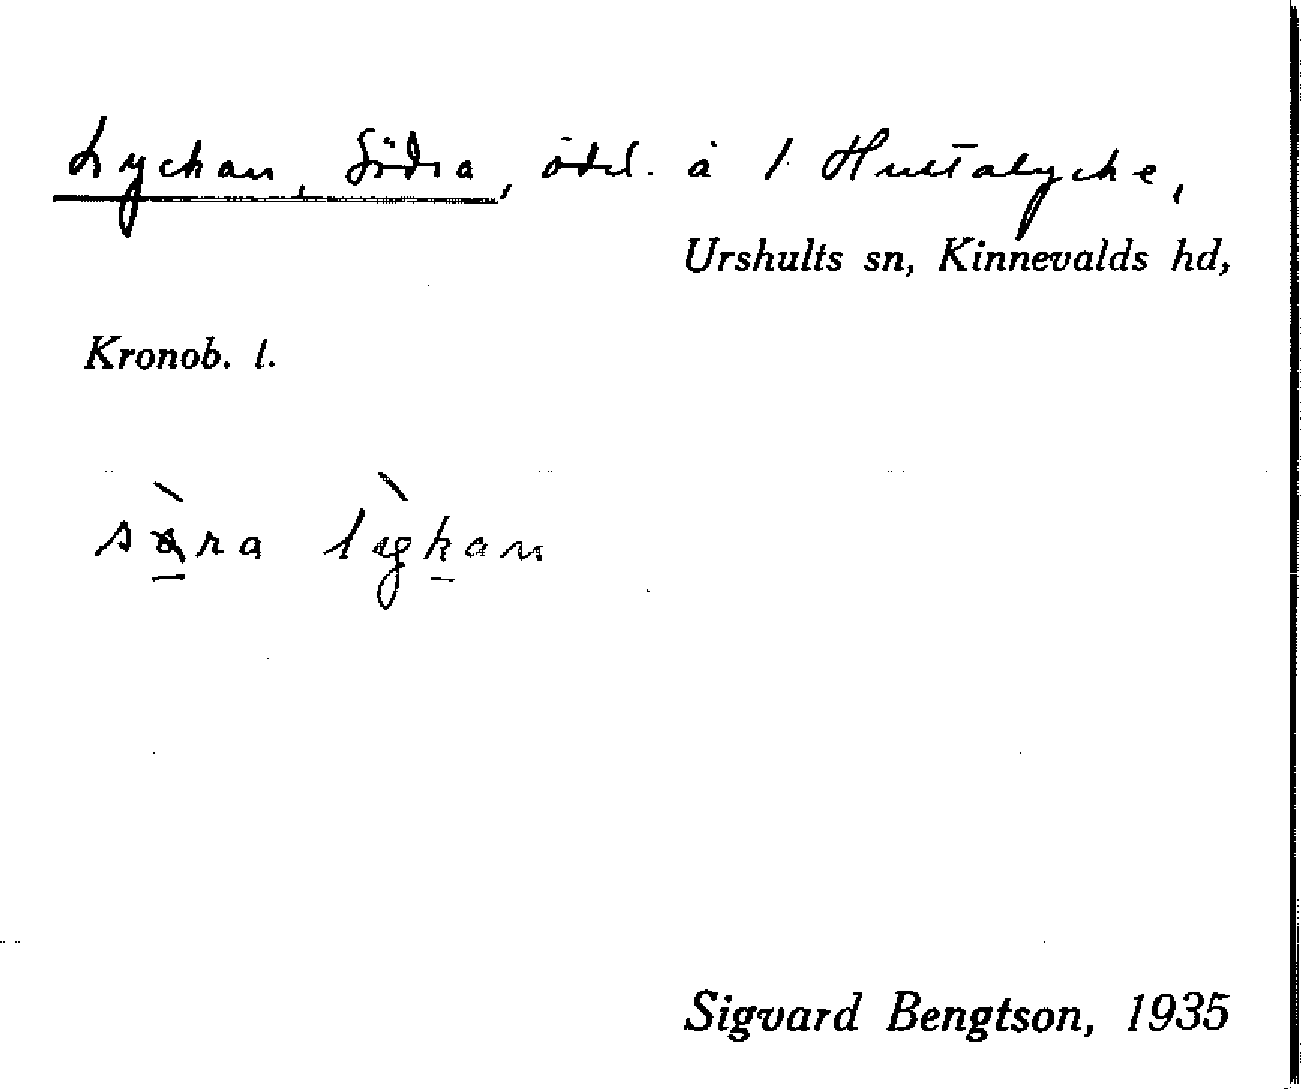 Lyckan, Södra, ödel. å 1 Hultalycke,
Urshults sn, Kinnevalds hd,
Kronob. l.
sra lykan
Sigvard Bengtson, 1935